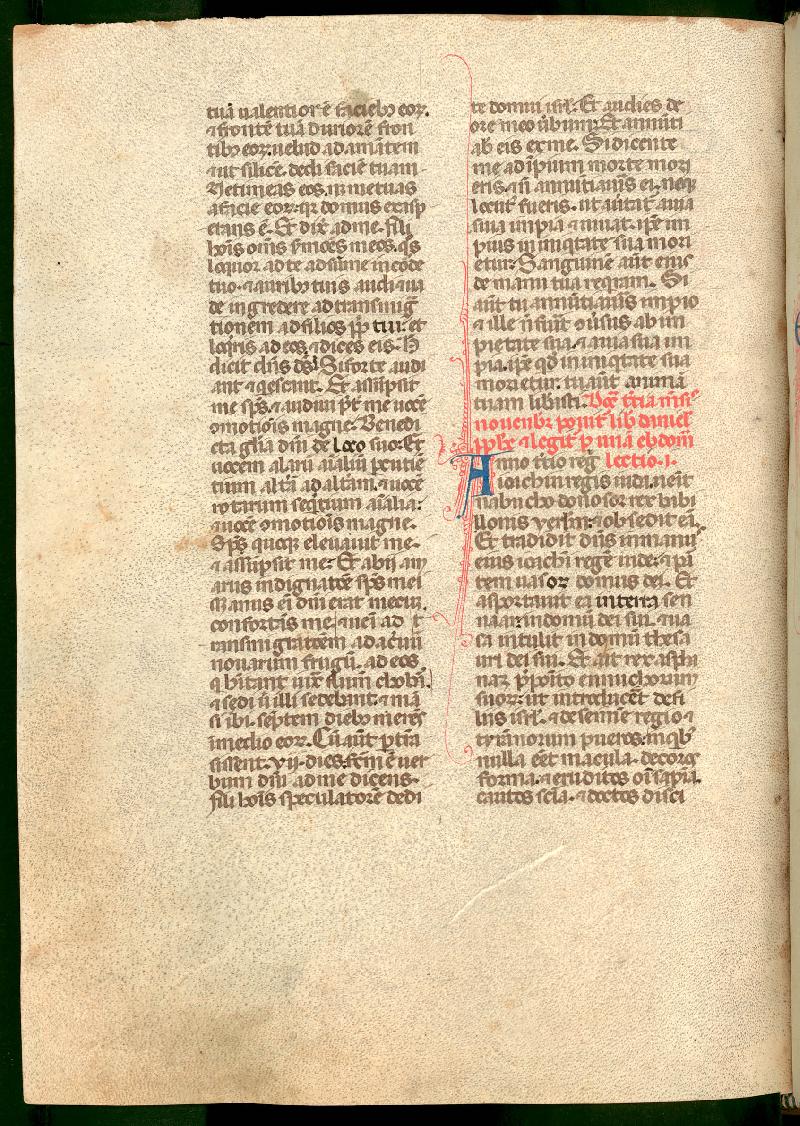 tuā ualentiorē faciebꝫ eoꝝ.
⁊ frontē tuā duriorē fron
tibꝫ eoꝝ. uelud adamātem
⁊ ut silicē. dedi faciē tuam
Ne timeas eos. n̄ metuas
a facie eoꝝ: qꝛ domus exasp
etans ē. Et dix̄ ad me. fili
hoīs om̄s s̄mōes meos. q̄s
loquor ad te adsume in corde
tuo. ⁊ auribꝫ tuis audi ⁊ ua
de ingredere ad transmig̃
tionem ad filios pp̄li tui. et
loq̄ris ad eos ⁊ dices eis. H̄
dicit dn̄s ds̄. Si forte audi
ant ⁊ qescant. Et assūpsit
me sp̄s. ⁊ audiui p̄t me uocē
ꝯmotiōis magne. Benedi
cta gl̄ia dn̄i de loco suo. Et
uocem alarū aīaliū p̄cutiē
tium altā ad altam. ⁊ uocē
rotarum seq̄tium aīalia.
⁊ uocē ꝯmotiōis magne.
Sp̄s quoqꝫ eleuauit me.
⁊ assūpsit me. Et abij am
arus indignatōe sp̄s mei
Manus eī dn̄i erat mecū.
confortās me. ⁊ ueī ad t
ransmigratōem ad aceruū
nouarum frugū. ad eos
q̄ hītant iux̄ flum̄ chobar.
⁊ sedi u̇ illi sedebant. ⁊ mā
si ibi. septem diebꝫ merēs
ī medio eoꝝ. Cū aūt p̄tiā
sissent. vij. dies. fcm̄ ē uer
bum dn̄i ad me dicens.
fili hoīs speculatorē dedi
te domui isrl̄. Et audies de
ore meo ūbum. Et annūti
ab eis ex me. Si dicente
me ad īpium morte mori
eris. n̄ annūtiaūis ei. neqꝫ
locut᷒ fueris. ut aūtat᷒ a uia
sua impia ⁊ uiuat. ip̄e im
pius in iniq̄tate sua mori
etur. Sanguinē aūt eius
de manu tua requiram. Si
aūt tu annūtiaūis impio
⁊ ille n̄ fūit ꝯūsus ab im
pietate sua. ⁊ a uia sua im
pia. ip̄e qd̄ in iniq̄tate sua
morietur. tu aūt animā
tuam libasti. Dc̄e t̄cia mēs᷒
nouembr̄ ponit᷒ lib̄ daniel
ꝓph̄e ⁊ legit᷒ p̄ unā ebdom̄
Anno t̄cio reg̃ lectio. i.
ioachim regis iuda. ueīt
nabuchodonosor rex babi
llonis yerl̄m. ⁊ obsedit eā.
Et tradidit dn̄s in manu
eius ioachī regē inde. ⁊ p̄
tem uasoꝝ domus dei. Et
asportauit ea in terra sen
naar. in domū dei sui. ⁊ ua
sa intulit in domū thesa
uri dei sui. Et ait rex asphā
naz p̄posito eunuchorum
suoꝝ: ut introducēt de fi
liis isrl̄. ⁊ de semīe regio ⁊
tyrānorum pueros. in qbꝫ
nulla eēt macula. decoros
forma. ⁊ eruditos oī sapīa.
cautos scīa. ⁊ doctos disci